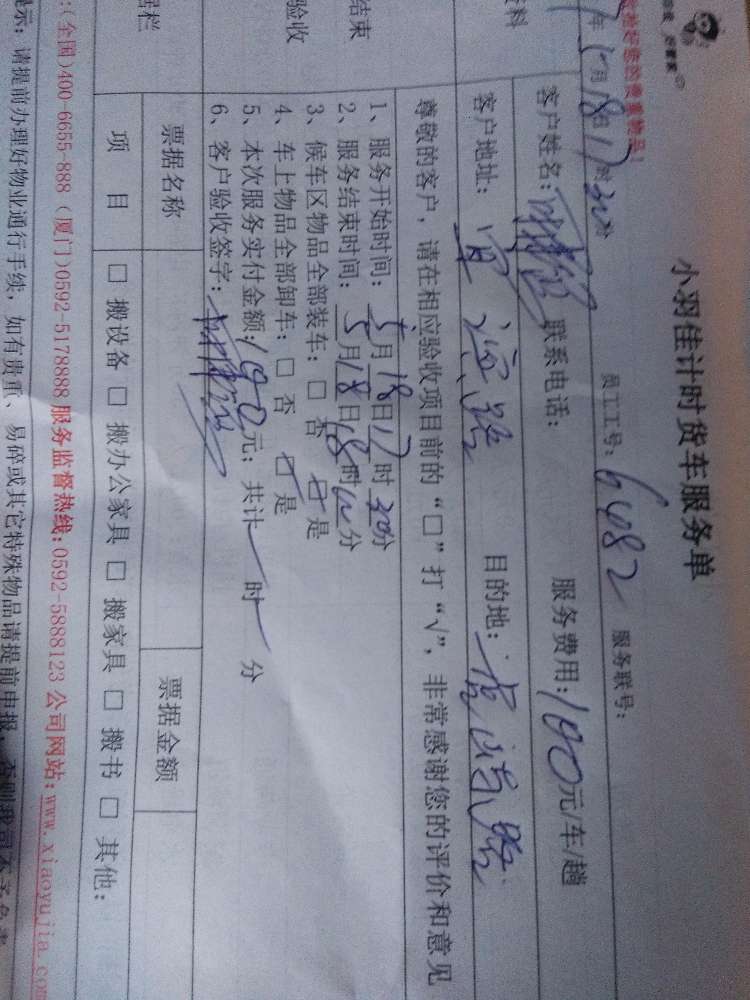 小羽佳计时货车服务单
员工工号：6482 服务联号：
年5月18日17时30分
客户姓名： 联系电话： 服务费用：190元/车/趟
客户地址： 路 目的地： 路
尊敬的客户，请在相应验收项目前的“□”打“√”，非常感谢您的评价和意见
1、服务开始时间：5月18日17时30分
2、服务结束时间：5月18日18时 分
3、候车区物品全部装车：□ 否 □ 是
4、车上物品全部卸车：□ 否 □ 是
5、本次服务实付金额：190元；共计 时 分
6、客户验收签字：
结束
验收
票据名称 票据金额
据栏
项 目 □ 搬设备 □ 搬办公家具 □ 搬家具 □ 搬书 □ 其他：
：(全国)400-6655-888（厦门)0592-5178888 服务监督热线：0592-5888123 公司网站：www.xiaoyujia.com
示：请提前办理好物业通行手续，如有贵重、易碎或其它特殊物品请提前申报，否则我司不予负责